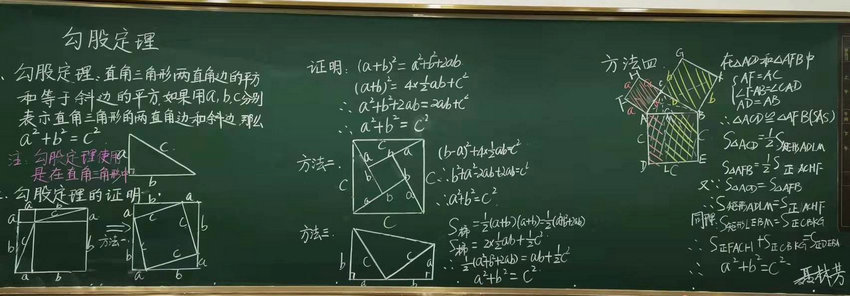 勾股定理
、勾股定理：直角三角形两直角边的平方
和等于斜边的平方如果用a,b,c分别
表示直角三角形的两直角边和斜边,那么
a²+b²=c²
注：勾股定理使用
是在直角三角形中
a
c
b
二、勾股定理的证明
方法一
证明：(a+b)²=a²+b²+2ab
(a+b)²=4×½ab+c²
∴a²+b²+2ab=2ab+c²
∴a²+b²=c²
方法二
(b-a)²+4×½ab=c²
∴b²+a²-2ab+2ab=c²
∴a²+b²=c²
方法三
S梯=½(a+b)(a+b)=½(a²+b²+2ab)
S梯=2×½ab+½c²
∴½(a²+b²+2ab)=ab+½c²
∴a²+b²=c²
方法四
在△ACD和△AFB中
AF=AC
∠FAB=∠CAD
AD=AB
∴△ACD≌△AFB(SAS)
S△ACD=½S矩形ADLM
S△AFB=½S正ACHF
又∵S△ACD=S△AFB
∴S矩形ADLM=S正ACHF
同理S矩形LEBM=S正CBKG
∴S正FACH+S正CBKG=S正DEBA
∴a²+b²=c²